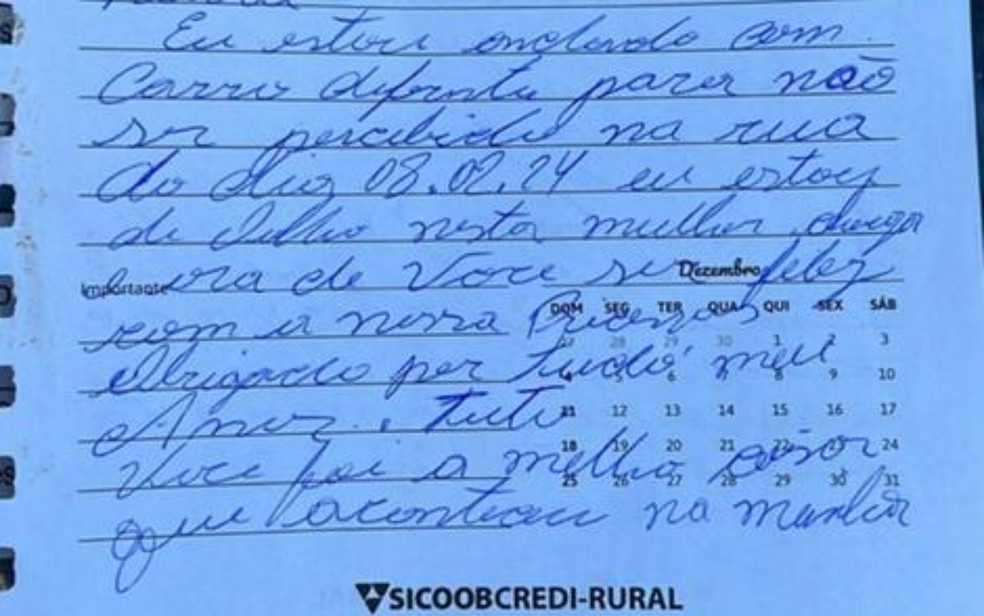 Eu estou andando com
Carro diferente para não
ser percebido na rua
do dia 08.02.24 eu estou
de olho nesta mulher chega
Importante ora de voce ser Dezembro feliz
DOM SEG TER QUA QUI SEX SÁB
com a nossa Princesas
27 28 29 30 1 2 3
Obrigado por tudo meu
4 5 6 7 8 9 10
Amor. tuto
11 12 13 14 15 16 17
18 19 20 21 22 23 24
Voce foi a melhor coisa
25 26 27 28 29 30 31
que aconteceu na minha
SICOOBCREDI-RURAL